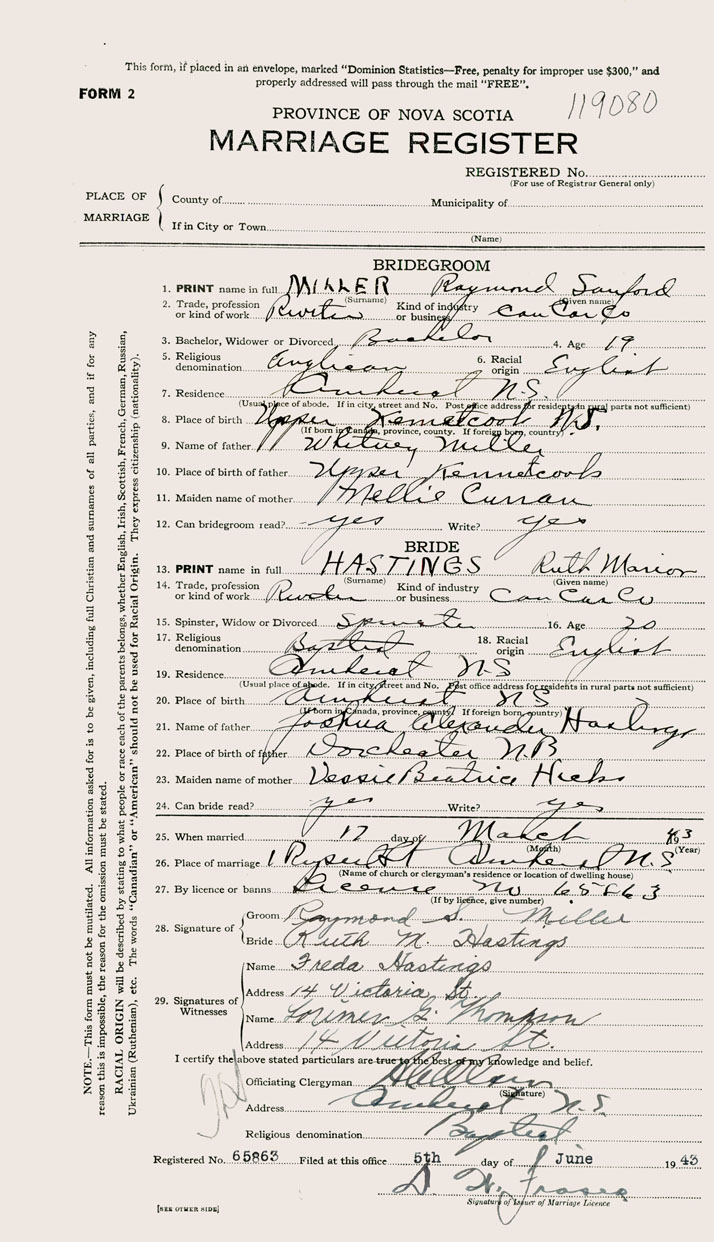 This form, if placed in an envelope, marked “Dominion Statistics—Free, penalty for improper use $300,” and
properly addressed will pass through the mail “FREE”.
FORM 2
119080
PROVINCE OF NOVA SCOTIA
MARRIAGE REGISTER
REGISTERED No.
(For use of Registrar General only)
PLACE OF MARRIAGE
County of Municipality of
If in City or Town
(Name)
BRIDEGROOM
1. PRINT name in full MILLER Raymond Sanford
(Surname) (Given name)
2. Trade, profession or kind of work Riveter Kind of industry or business Can Car Co
3. Bachelor, Widower or Divorced Bachelor 4. Age 19
5. Religious denomination Anglican 6. Racial origin English
7. Residence Amherst N.S.
(Usual place of abode. If in city, street and No. Post office address for residents in rural parts not sufficient)
8. Place of birth Upper Kennetcook N.S.
(If born in Canada, province, county. If foreign born, country)
9. Name of father Whitney Miller
10. Place of birth of father Upper Kennetcook
11. Maiden name of mother Mellie Curran
12. Can bridegroom read? yes Write? yes
BRIDE
13. PRINT name in full HASTINGS Ruth Marion
(Surname) (Given name)
14. Trade, profession or kind of work Kind of industry or business Can Car Co
15. Spinster, Widow or Divorced Spinster 16. Age 20
17. Religious denomination Baptist 18. Racial origin English
19. Residence Amherst N S
(Usual place of abode. If in city, street and No. Post office address for residents in rural parts not sufficient)
20. Place of birth Amherst N S
(If born in Canada, province, county. If foreign born, country)
21. Name of father Joshua Alexander Hastings
22. Place of birth of father Dorchester N.B
23. Maiden name of mother Vessie Beatrice Hicks
24. Can bride read? yes Write? yes
25. When married 17 day of March 1943
(Month) (Year)
26. Place of marriage 1 St Amherst N.S
(Name of church or clergyman's residence or location of dwelling house)
27. By licence or banns License No 65863
(If by licence, give number)
28. Signature of
Groom Raymond S. Miller
Bride Ruth M. Hastings
29. Signatures of Witnesses
Name Freda Hastings
Address 14 Victoria St.
Name Lorimer G. Thompson
Address 14 Victoria St.
I certify the above stated particulars are true to the best of my knowledge and belief.
Officiating Clergyman
(Signature)
Address Amherst N.S.
Religious denomination Baptist
Registered No. 65863 Filed at this office 5th day of June 1943
D. W. Fraser
Signature of Issuer of Marriage Licence
[SEE OTHER SIDE]
NOTE.—This form must not be mutilated. All information asked for is to be given, including full Christian and surnames of all parties, and if for any
reason this is impossible, the reason for the omission must be stated.
RACIAL ORIGIN will be described by stating to what people or race each of the parents belongs, whether English, Irish, Scottish, French, German, Russian,
Ukrainian (Ruthenian), etc. The words “Canadian” or “American” should not be used for Racial Origin. They express citizenship (nationality).